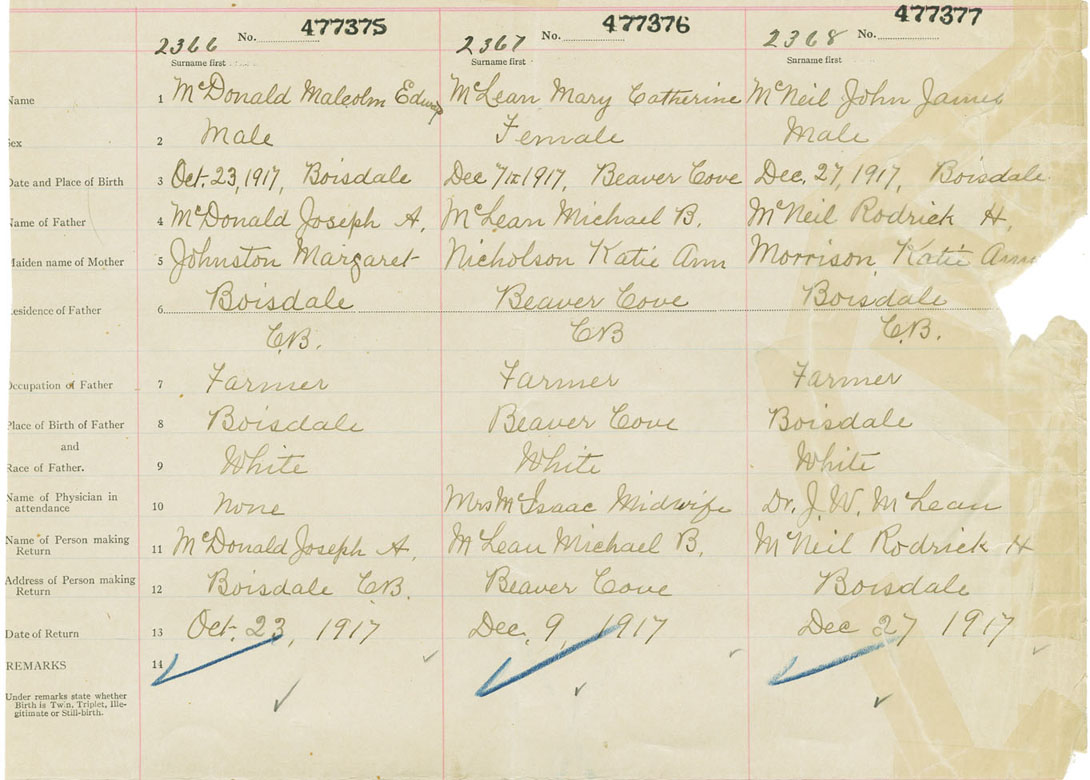 477375 477376 477377
2366 No. 2367 No. 2368 No.
Surname first Surname first Surname first
Name 1 McDonald Malcolm Edwin McLean Mary Catherine McNeil John James
Sex 2 Male Female Male
Date and Place of Birth 3 Oct. 23, 1917, Boisdale Dec 7th 1917, Beaver Cove Dec. 27, 1917, Boisdale
Name of Father 4 McDonald Joseph A. McLean Michael B. McNeil Rodrick H.
Maiden name of Mother 5 Johnston Margaret Nicholson Katie Ann Morrison Katie Ann
Residence of Father 6 Boisdale Beaver Cove Boisdale
C.B. CB C.B.
Occupation of Father 7 Farmer Farmer Farmer
Place of Birth of Father 8 Boisdale Beaver Cove Boisdale
and
Race of Father. 9 White White White
Name of Physician in
attendance 10 None Mrs McIsaac Midwife Dr. J. W. McLean
Name of Person making
Return 11 McDonald Joseph A. McLean Michael B. McNeil Rodrick H
Address of Person making
Return 12 Boisdale C.B. Beaver Cove Boisdale
Date of Return 13 Oct. 23, 1917 Dec. 9, 1917 Dec 27 1917
REMARKS 14
Under remarks state whether
Birth is Twin, Triplet, Ille-
gitimate or Still-birth.